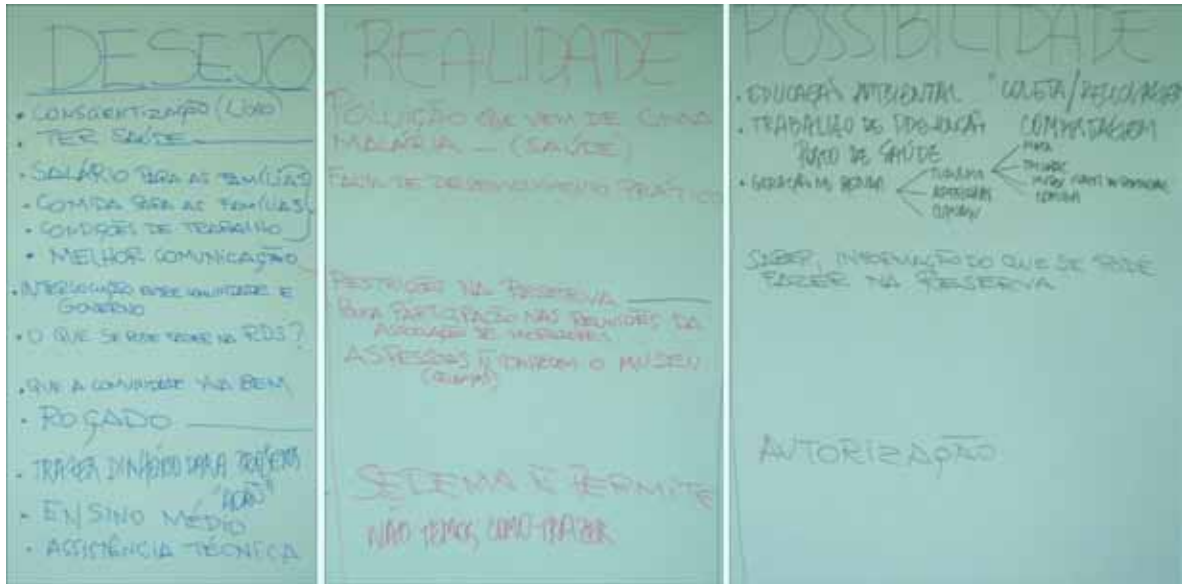 DESEJO
• CONSCIENTIZAÇÃO (LIXO)
• TER SAÚDE
• SALÁRIO PARA AS FAMÍLIAS
• COMIDA PARA AS FAMÍLIAS
• CONDIÇÕES DE TRABALHO
• MELHOR COMUNICAÇÃO
• INTERLOCUÇÃO ENTRE COMUNIDADE E
GOVERNO
• O QUE SE PODE FAZER NA RDS?
• QUE A COMUNIDADE VIVA BEM
• ROÇADO
• TRAZER DINHEIRO PARA
• ENSINO MÉDIO
• ASSISTÊNCIA TÉCNICA
REALIDADE
POLUIÇÃO QUE VEM DE CIMA
MALÁRIA - (SAÚDE)
FALTA DE DESENVOLVIMENTO PRÁTICO
RESTRIÇÕES NA RESERVA
POUCA PARTICIPAÇÃO NAS REUNIÕES DA
ASSOCIAÇÃO DE MORADORES
AS PESSOAS Ñ CONHECEM O MUSEU
(CRIANÇAS)
SEDEMA Ñ PERMITE
NÃO TEMOS COMO TRAZER
POSSIBILIDADE
• EDUCAÇÃO AMBIENTAL "COLETA/RECICLAGEM
COMPOSTAGEM
• TRABALHO DE PREVENÇÃO
POSTO DE SAÚDE
• GERAÇÃO DE RENDA
TURISMO
ARTESANATO
SABER, INFORMAÇÃO DO QUE SE PODE
FAZER NA RESERVA
AUTORIZAÇÃO